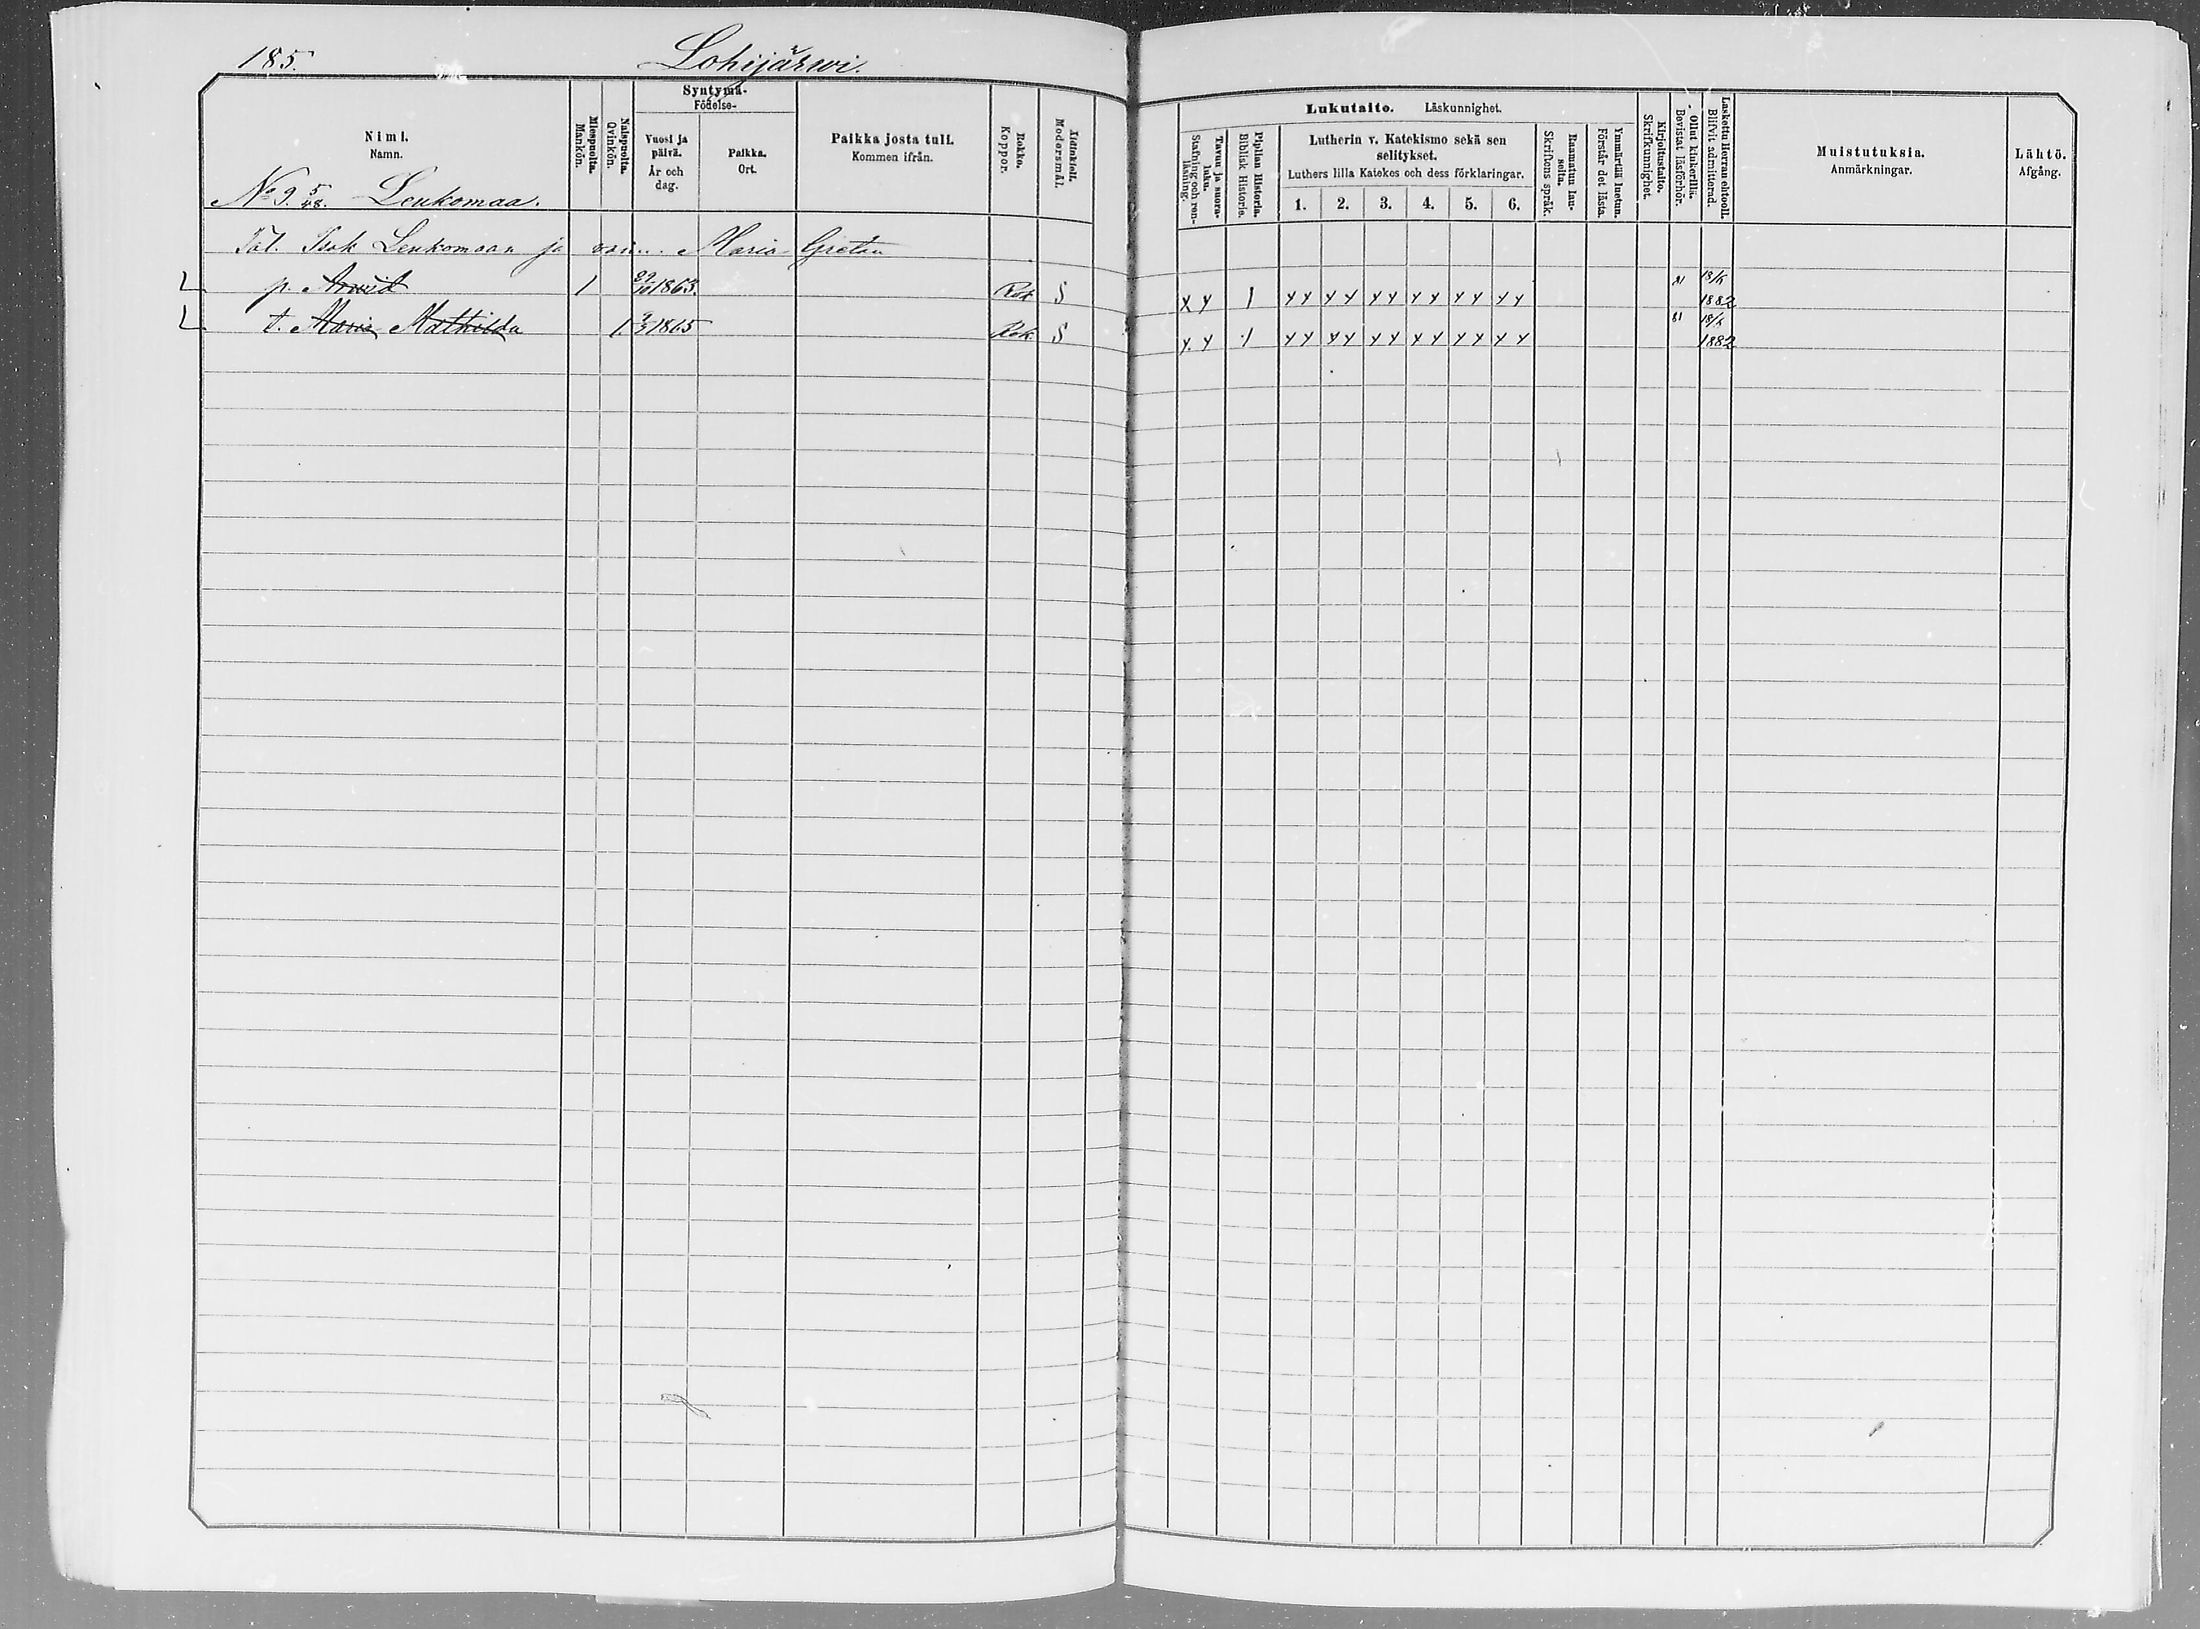 185.
Lohijärwi.
Nimi.
Namn.
Miespuolta.
Mankön.
Naispuolta.
Qvinkön.
Syntymä-
Födelse-
Vuosi ja päivä.
År och dag.
Paikka.
Ort.
Paikka josta tuli.
Kommen ifrån.
Rokko.
Koppor.
Äidinkieli.
Modersmål.
Lukutaito. Läskunnighet.
Tavuu ja suora-luku.
Stafning och ren-läsning.
Piplian Historia.
Biblisk Historie.
Lutherin v. Katekismo sekä sen selitykset.
Luthers lilla Katekes och dess förklaringar.
1. 2. 3. 4. 5. 6.
Raamatun lau-seita.
Skriftens språk.
Ymmärtää luetun.
Förstår det lästa.
Kirjoitustaito.
Skrifkunnighet.
Ollut kinkerillä.
Bevistat läsförhör.
Laskettu Herran ehtooll.
Blifvit admitterad.
Muistutuksia.
Anmärkningar.
Lähtö.
Afgång.
No 9. 5/48. Leukomaa.
Tal. Isak Leukomaan ja vaim. Maria Gretan
p. Arwid 1 1863. Rok S x y 1 y y y y y y y y y y y y 81 18/6 1882
t. Maria Mathilda 1. 1865 Rok S y. y 1 y y y y y y y y y y y y 81 18/6 1882